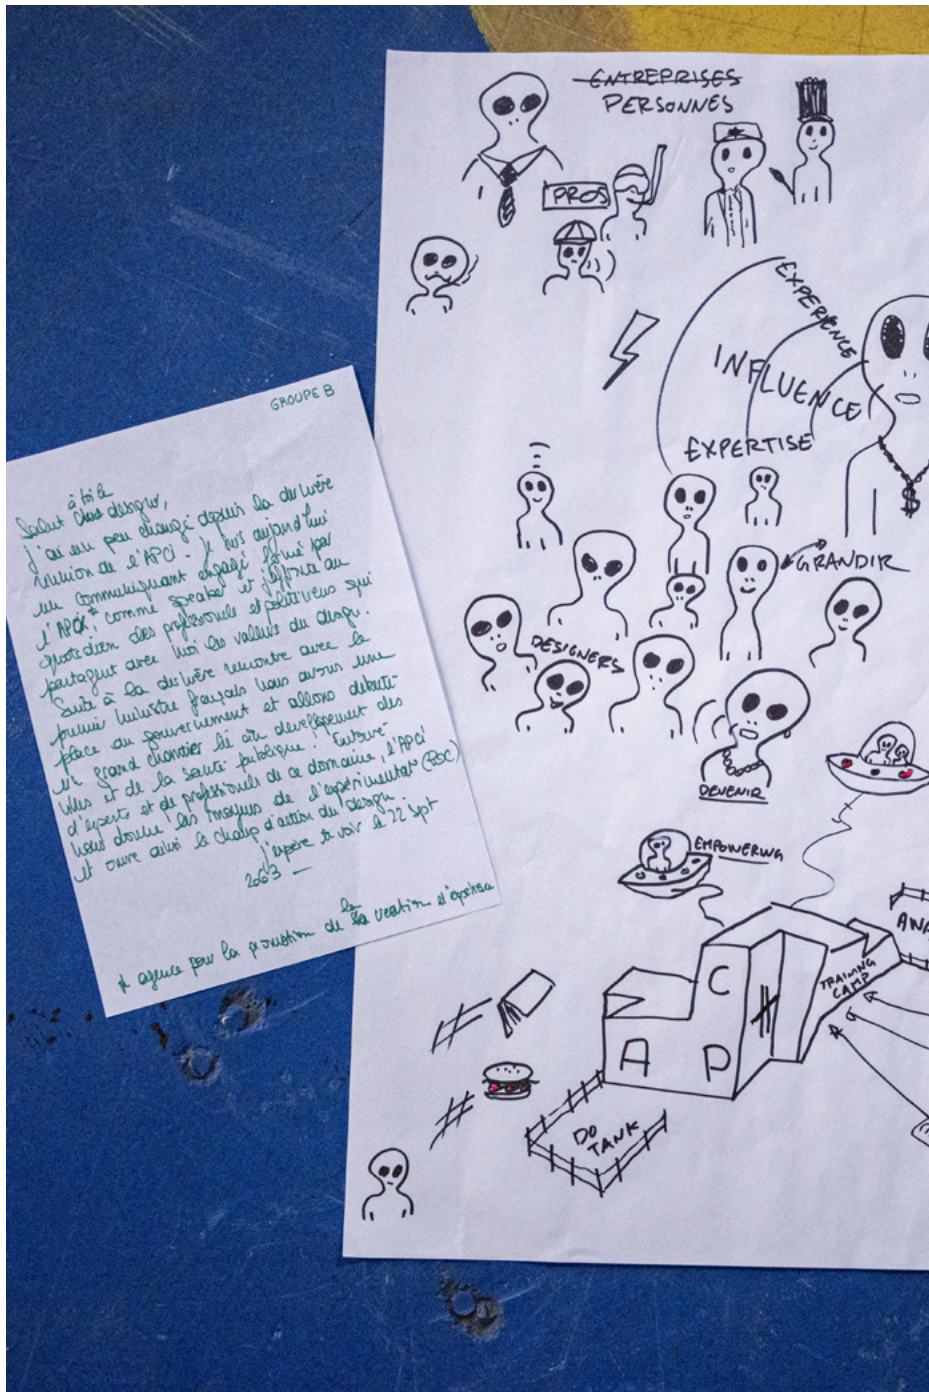 GROUPE B
à toi le
Salut design,
j'ai un peu changé depuis la dernière
réunion de l'APCi - Je suis aujourd'hui
un communiquant engagé formé par
l'APCi* comme speaker et j'affronte au
quotidien des professionnels et politiques qui
partagent avec moi les valeurs du design.
Suite à la dernière rencontre avec le
premier ministre français nous avons une
place au gouvernement et allons débuter
un grand chantier lié au développement des
villes et de la santé publique. Entouré
d'experts et de professionnels de ce domaine, l'APCi
nous donne les moyens de l'expérimentat° (POC)
et ouvre ainsi le champ d'action du design
j'espère te voir le 22 Sept
2063 —
* agence pour la promotion de la création
ENTREPRISES
PERSONNES
PROS
EXPERIENCE
INFLUENCE
EXPERTISE
GRANDIR
DESIGNERS
DEVENIR
EMPOWERING
AWA
TRAINING
CAMP
C
A P
#
#
DO
TANK